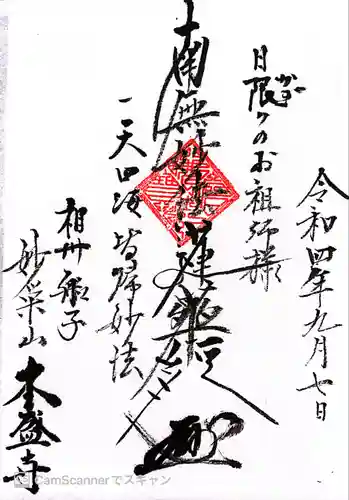 令和四年九月七日
日限りのお祖師様
南無妙法蓮華経
一天四海皆帰妙法
相州
妙栄山
本盛寺
CamScannerでスキャン